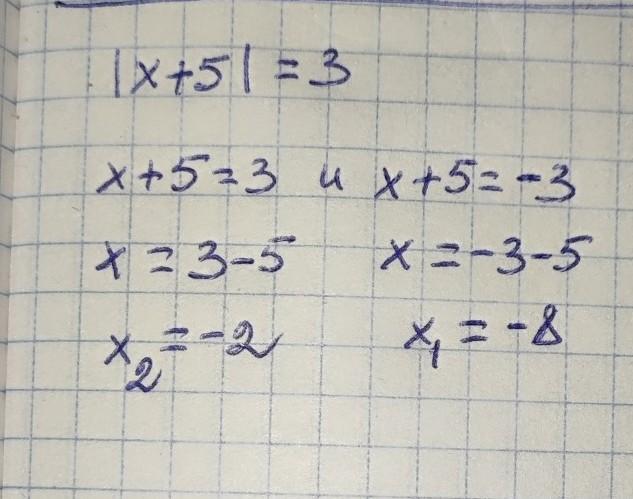 |x+5| = 3
x+5=3 и x+5=-3
x = 3-5 x = -3-5
x₂ = -2 x₁ = -8